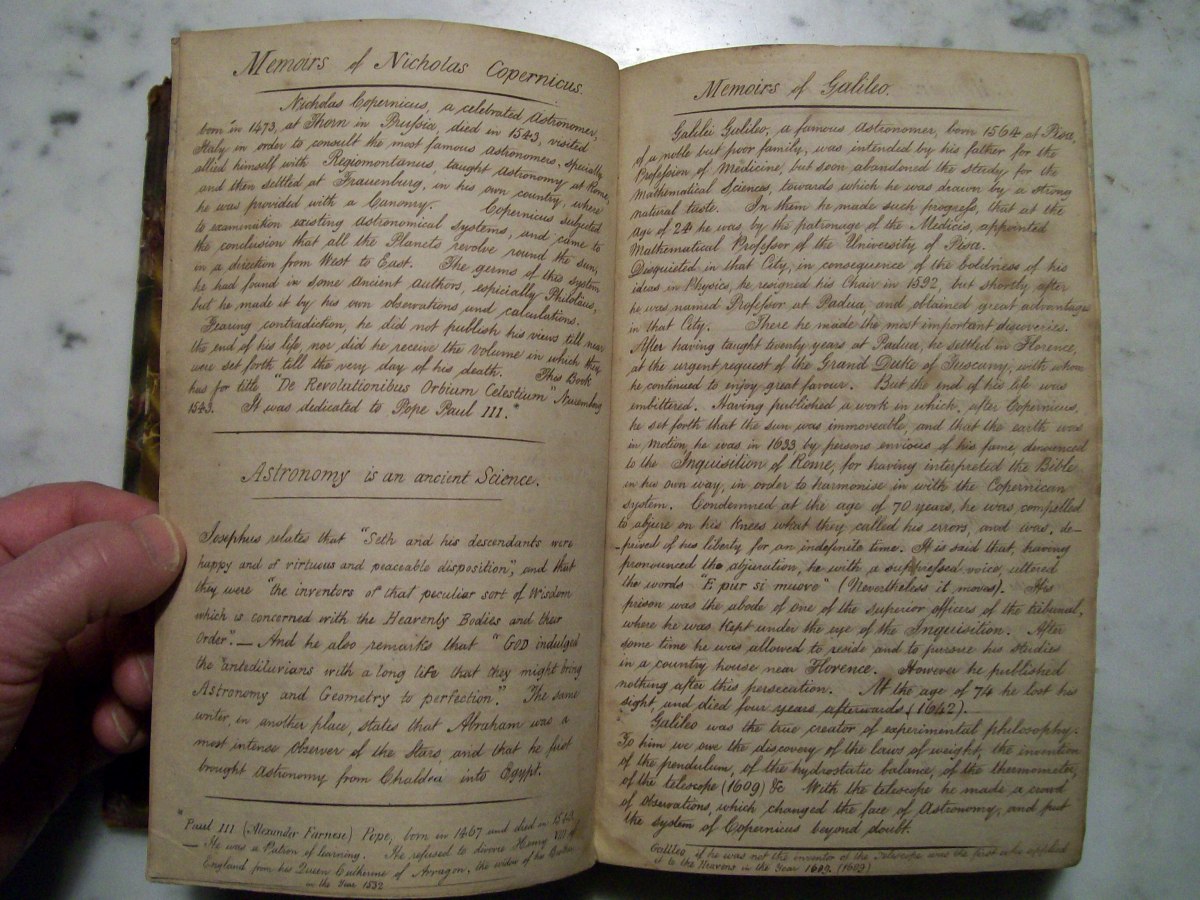 Memoirs of Nicholas Copernicus.
Nicholas Copernicus, a celebrated Astronomer,
born in 1473, at Thorn in Prussia, died in 1543, visited
Italy in order to consult the most famous Astronomers. Specially
allied himself with Regiomontanus, taught Astronomy at Rome,
and then settled at Frauenburg, in his own country, where
he was provided with a Canonry. Copernicus subjected
to examination existing Astronomical systems, and came to
the conclusion that all the Planets revolve round the Sun,
in a direction from West to East. The germs of this system
he had found in some Ancient Authors, especially Philolaüs,
but he made it by his own observations and calculations.
Fearing contradiction, he did not publish his views till near
the end of his life, nor did he receive the Volume in which they
were set forth till the very day of his death. This Book
has for title "De Revolutionibus Orbium Celestium" Nuremberg
1543. It was dedicated to Pope Paul III.*
Astronomy is an ancient Science.
Josephus relates that "Seth and his descendants were
happy and of virtuous and peaceable disposition", and that
they were "the inventors of that peculiar sort of Wisdom
which is concerned with the Heavenly Bodies and their
Order". — And he also remarks that "GOD indulged
the antediluvians with a long life that they might bring
Astronomy and Geometry to perfection." The same
writer, in another place, states that Abraham was a
most intense Observer of the Stars, and that he first
brought Astronomy from Chaldea into Egypt.
* Paul III (Alexander Farnese) Pope, born in 1467 and died in 1543.
— He was a Patron of learning. He refused to divorce Henry VIII of
England from his Queen Catherine of Arragon, the widow of his Brother
in the Year 1532
Memoirs of Galileo.
Galilei Galileo, a famous Astronomer, born 1564 at Pisa,
of a noble but poor family, was intended by his father for the
Profession of Medicine, but soon abandoned the study for the
Mathematical Sciences, towards which he was drawn by a strong
natural taste. In them he made such progress, that at the
age of 24 he was, by the patronage of the Medicis, appointed
Mathematical Professor of the University of Pisa.
Disquisted in that City, in consequence of the boldness of his
ideas in Physics, he resigned his Chair in 1592, but shortly after
he was named Professor at Padua, and obtained great advantages
in that City. There he made the most important discoveries.
After having taught twenty years at Padua, he settled in Florence,
at the urgent request of the Grand Duke of Tuscany, with whom
he continued to enjoy great favour. But the end of his life was
embittered. Having published a work in which, after Copernicus,
he set forth that the sun was immoveable, and that the earth was
in motion, he was in 1633 by persons envious of his fame, denounced
to the Inquisition of Rome, for having interpreted the Bible
in his own way, in order to harmonise in with the Copernican
system. Condemned at the age of 70 years, he was compelled
to abjure on his knees what they called his errors, and was, de-
-prived of his liberty for an indefinite time. It is said that, having
pronounced the abjuration, he with a suppressed voice, uttered
the words "E pur si muove" (Nevertheless it moves). His
prison was the abode of one of the superior officers of the tribunal,
where he was kept under the eye of the Inquisition. After
some time he was allowed to reside and to pursue his studies
in a country house near Florence. However he published
nothing after this persecution. At the age of 74 he lost his
sight, and died four years afterwards (1642).
Galileo was the true creator of experimental philosophy.
To him we owe the discovery of the laws of weight, the invention
of the pendulum, of the hydrostatic balance, of the thermometer,
of the telescope (1609) &c With the telescope he made a crowd
of observations, which changed the face of Astronomy, and put
the system of Copernicus beyond doubt.
Galileo, if he was not the inventor of the Telescope was the first who applied
it to the Heavens in the Year 1609. (1609)